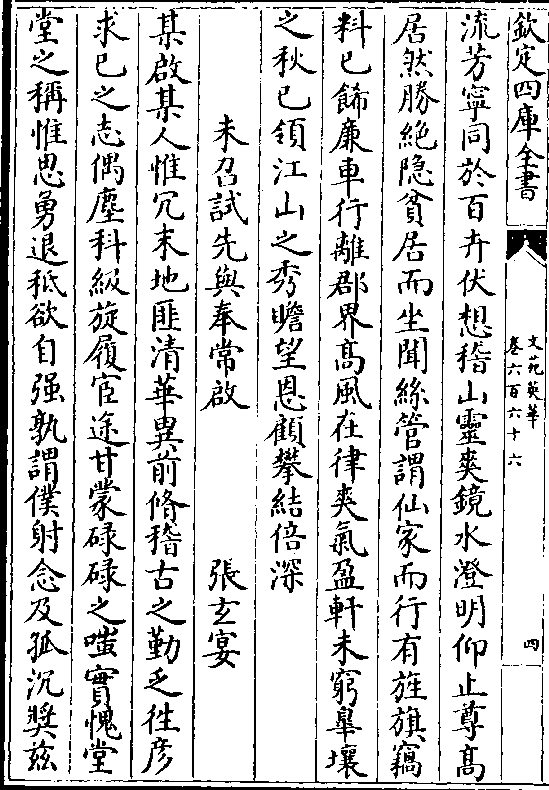 欽定四庫全書
文苑英華
卷六百六十六
四
流芳寧同於百卉伏想稽山靈爽鏡水澄明仰止尊高
居然勝絶隐貧居而坐聞絲管謂仙家而行有旌旗竊
料已飾廉車行離郡界髙風在律爽氣盈軒未窮臯壤
之秋已領江山之秀瞻望恩顧攀結倍深
未召試先與奉常啟
張玄宴
某啟某人惟冗末地匪清華異前脩稽古之勤乏徃彦
求已之志偶塵科級旋履宦途甘蒙碌碌之嗤實愧堂
堂之稱惟思勇退秪欲自强孰謂僕射念及孤沉奬兹